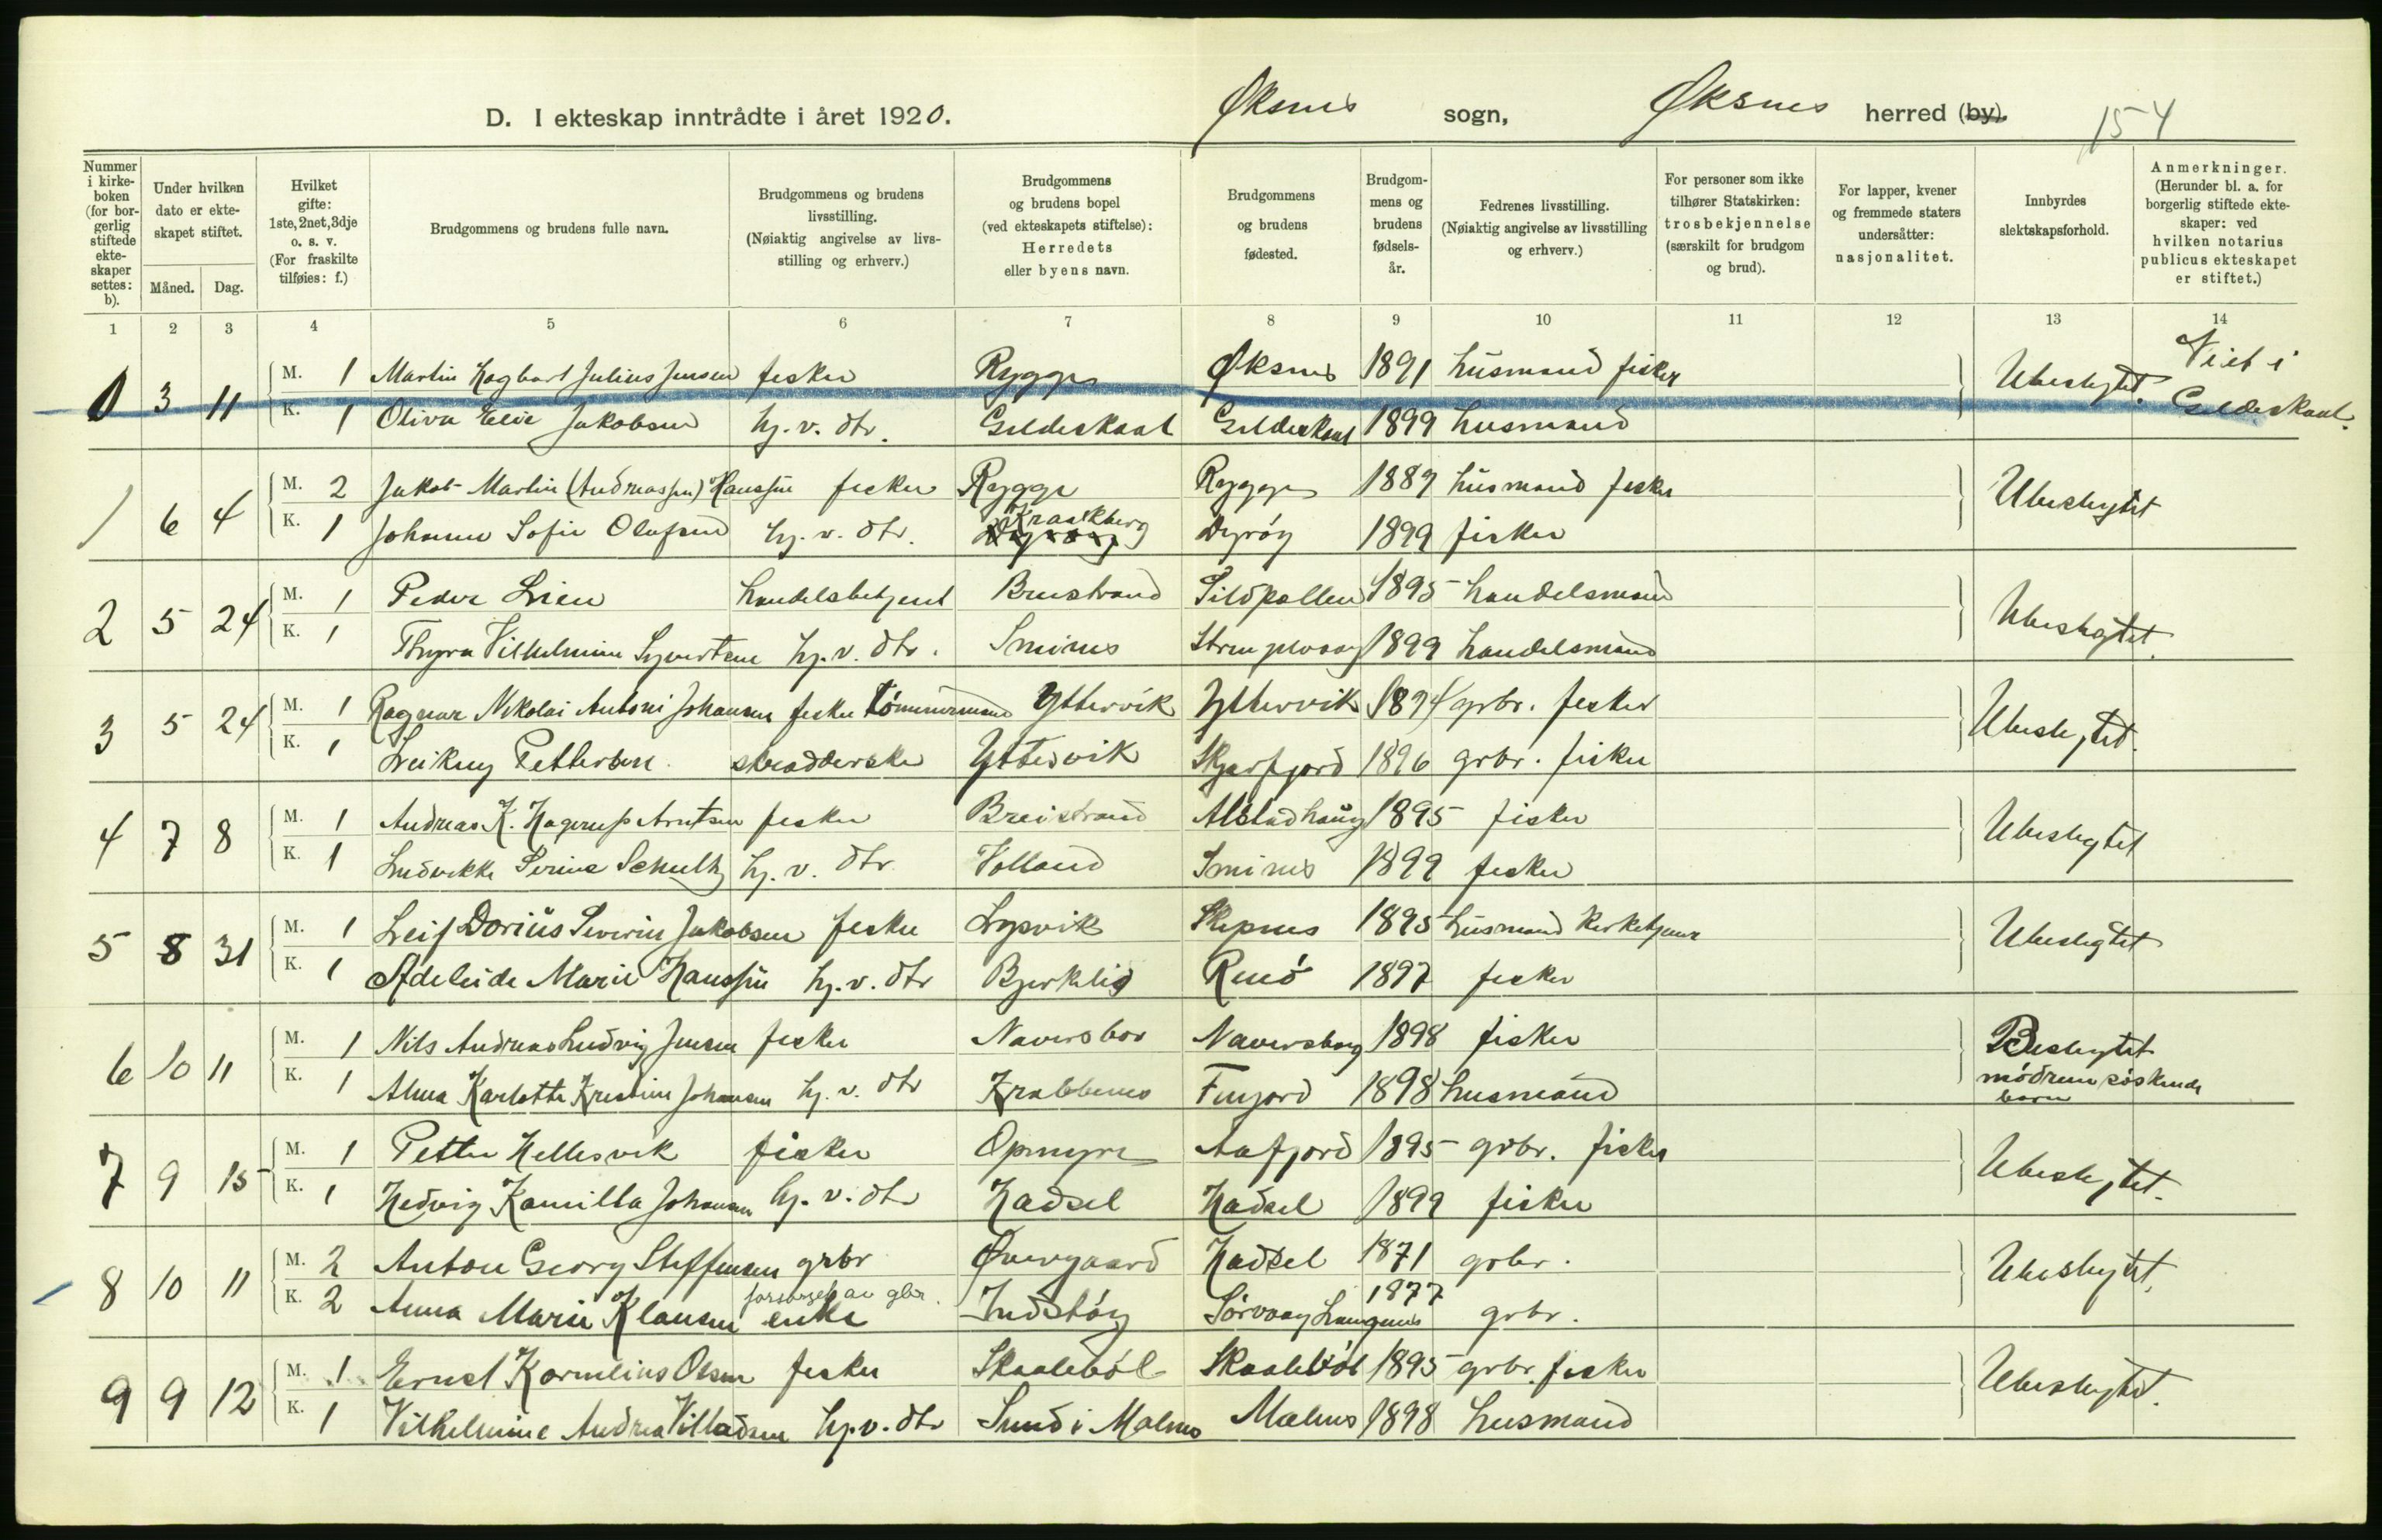 D. I ekteskap inntrådte i året 1920. Øksnes sogn, Øksnes herred (by). 154
Nummer i kirkeboken (for borgerlig stiftede ekteskaper settes: b).
Under hvilken dato er ekteskapet stiftet.
Måned. Dag.
Hvilket gifte: 1ste, 2net, 3dje o. s. v. (For fraskilte tilføies: f.)
Brudgommens og brudens fulle navn.
Brudgommens og brudens livsstilling. (Nøiaktig angivelse av livsstilling og erhverv.)
Brudgommens og brudens bopel (ved ekteskapets stiftelse): Herredets eller byens navn.
Brudgommens og brudens fødested.
Brudgommens og brudens fødselsår.
Fedrenes livsstilling. (Nøiaktig angivelse av livsstilling og erhverv.)
For personer som ikke tilhører Statskirken: trosbekjennelse (særskilt for brudgom og brud).
For lapper, kvener og fremmede staters undersåtter: nasjonalitet.
Innbyrdes slektskapsforhold.
Anmerkninger. (Herunder bl. a. for borgerlig stiftede ekteskaper: ved hvilken notarius publicus ekteskapet er stiftet.)
1 2 3 4 5 6 7 8 9 10 11 12 13 14
0 3 11 M. 1 Martin Hagbart Julius Jensen fisker Rygge Øksnes 1891 husmand fisker Ubeslegtet. Viet i Gildeskaal.
K. 1 Oliva Elise Jakobsen hj. v. dtr. Gildeskaal Gildeskaal 1899 husmand
1 6 4 M. 2 Jakob Martin (Andreassen) Hanssen fisker Rygge Rygge 1889 husmand fisker Ubeslegtet
K. 1 Johanne Sofie Olufsen hj. v. dtr. Kraakberg Dyrøy 1899 fisker
2 5 24 M. 1 Peder Lien handelsbetjent Breistrand Sildpollen 1895 handelsmand Ubeslegtet.
K. 1 Thyra Vilhelmine Syvertsen hj. v. dtr. Smines 1899 handelsmand
3 5 24 M. 1 Ragnar Nikolai Antoni Johansen fisker tømmermand Yttervik Yttervik 1894 grbr. fisker Ubeslegtet.
K. 1 Leikny Pettersen skredderske Yttervik Skjerfjord 1896 grbr. fisker
4 7 8 M. 1 Andreas K. Hagerup Arntsen fisker Breistrand Alstadhaug 1895 fisker Ubeslegtet
K. 1 Ludvikke Serine Schultz hj. v. dtr. Volland Smines 1899 fisker
5 8 31 M. 1 Leif Dorius Severin Jakobsen fisker Lysvik Skipnes 1895 husmand kirketjener Ubeslegtet
K. 1 Adeleide Marie Hanssen hj. v. dtr Bjerklid Renö 1897 fisker
6 10 11 M. 1 Nils Andreas Ludvig Jensen fisker Naversbor Naversborg 1898 fisker Beslegtet
K. 1 Alma Karlotte Kristine Johansen hj. v. dtr Krabbenes Finfjord 1898 husmand mødrene søskende barn
7 9 15 M. 1 Petter Hellesvik fisker Opmyre Aafjord 1895 grbr. fisker Ubeslegtet.
K. 1 Hedvig Kamilla Johansen hj. v. dtr Hadsel Hadsel 1899 fisker
8 10 11 M. 2 Anton Georg Steffensen grbr Øvergaard Hadsel 1871 grbr. Ubeslegtet.
K. 2 Anna Marie Klausen forsørget av gbr. enke Indstøy Sørvaag Langenes 1877 grbr.
9 9 12 M. 1 Ernst Kornelius Olsen fisker Skaalebøl Skaalebøl 1895 grbr. fisker Ubeslegtet.
K. 1 Vilhelmine Andrea Villadsen hj. v. dtr Sund i Malnes Malnes 1898 husmand